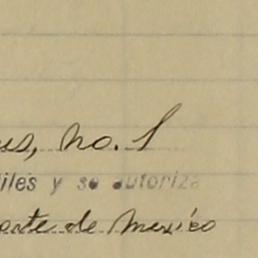 us, no. 1
iles y se autoriza
parte de Mexico